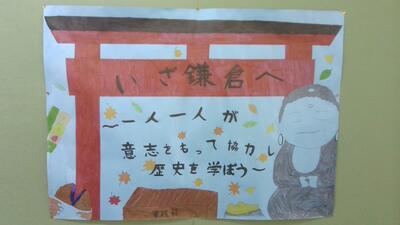 いざ鎌倉へ
～一人一人が
意志をもって協力し
歴史を学ぼう～